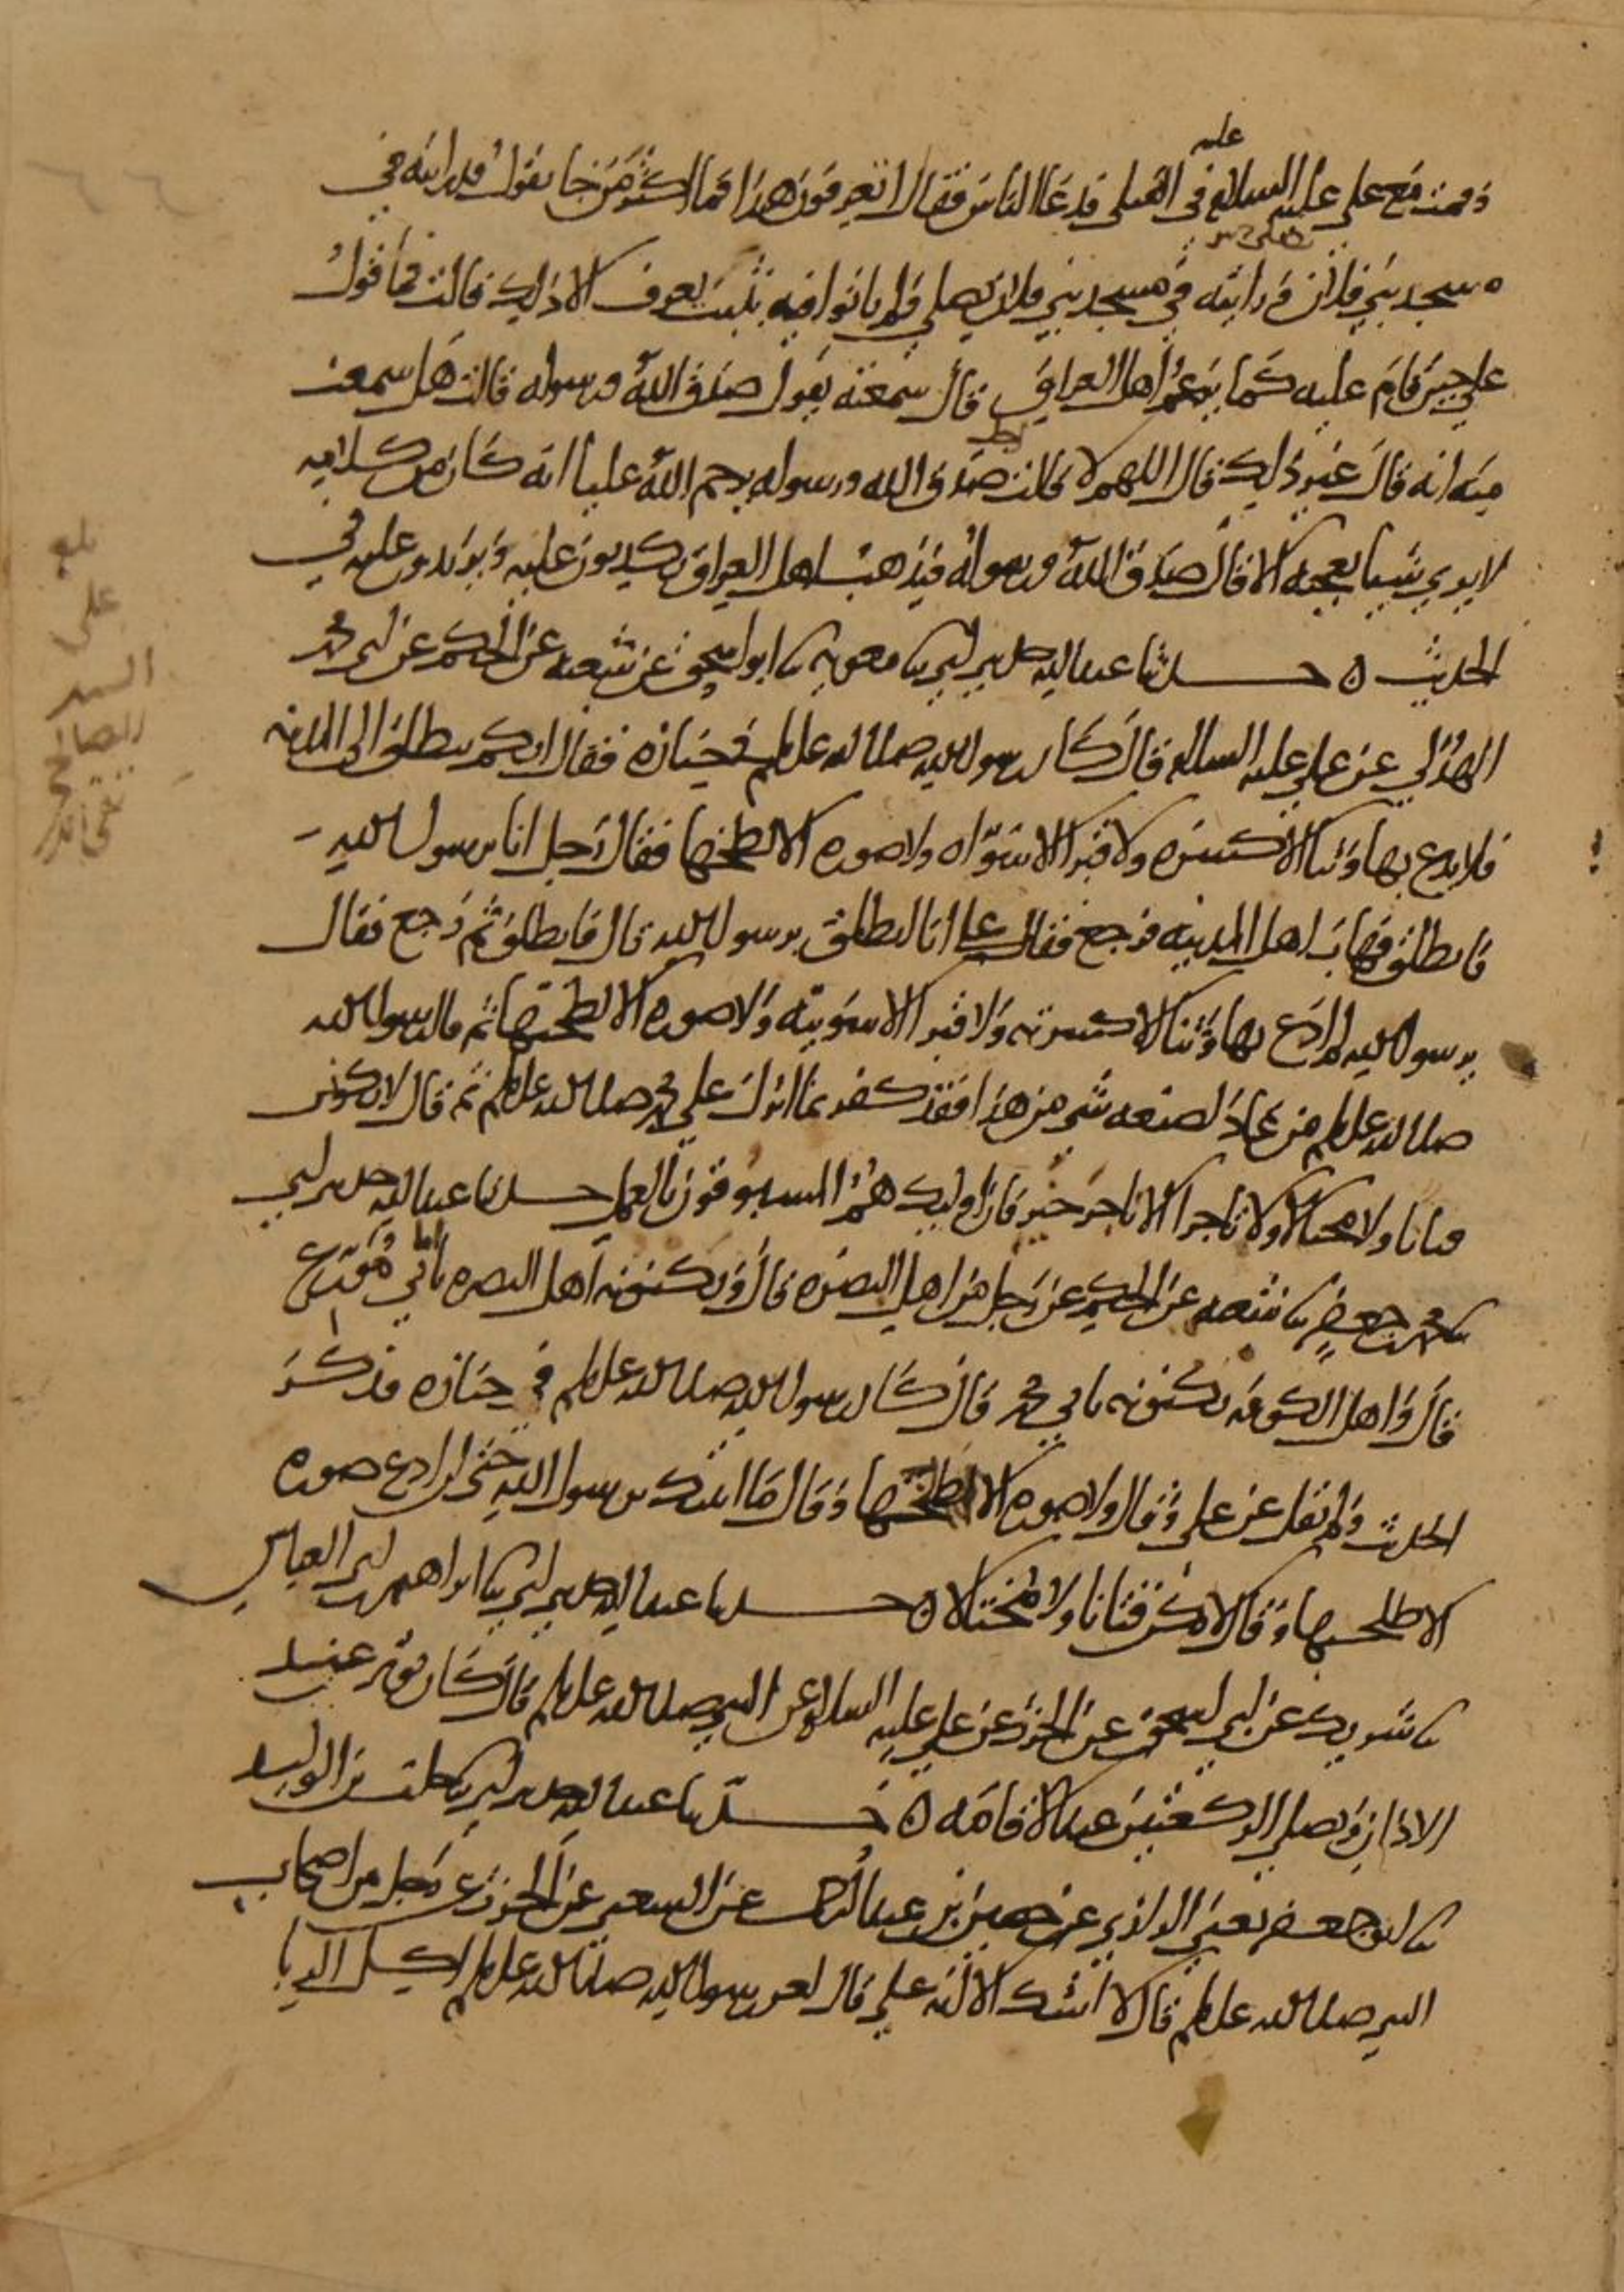 وقمت مع علي عليه السلام في القتلى فدعا الناس فقال اتعرفون هذا فما اكثر من جا يقول قد رايته في
مسجد بني فلان ورايته في مسجد بني فلان يصلي ولم ياتوا فيه بثبت يعرف الا ذلك قالت فما قول
علي حين قام عليه كما يزعم اهل العراق قال سمعته يقول صدق الله ورسوله قالت هل سمعت
منه انه قال غير ذلك قال اللهم لا قالت صدق الله ورسوله يرحم الله عليا انه كان من كلامه
لا يرى شيا يعجبه الا قال صدق الله ورسوله فيذهب اهل العراق يكذبون عليه ويزيدون عليه في
الحديث ه حدثنا عبد الله حدثني ابي ثنا معوية ثنا ابو اسحق عن شعبه عن الحكم عن ابي محمد
الهذلي عن علي عليه السلم قال كان رسول الله صلى الله عليه وسلم في جنازه فقال ايكم ينطلق الى المدينه
فلا يدع بها وثنا الا كسره ولا قبرا الا سواه ولا صوره الا لطخها فقال رجل انا يرسول الله
فانطلق فهاب اهل المدينه فرجع فقال علي انا انطلق يرسول الله قال فانطلق ثم رجع فقال
يرسول الله لم ادع بها وثنا الا كسرته ولا قبرا الا سويته ولا صوره الا لطختها ثم قال رسول الله
صلى الله عليه وسلم من عاد لصنعه شي من هذا فقد كفر بما انزل على محمد صلى الله عليه وسلم ثم قال لا تكونن
فتانا ولا مختالا ولا تاجرا الا تاجر خير فان اوليك هم المسبوقون بالعمل حدثنا عبد الله حدثني ابي
ثنا محمد بن جعفر ثنا شعبه عن الحكم عن رجل من اهل البصره قال ويكنونه اهل البصره ابا مورع
قال واهل الكوفه يكنونه بابي محمد قال كان رسول الله صلى الله عليه وسلم في جنازه فذكر
الحديث ولم يقل عن علي وقال ولا صوره الا لطخها وقال ما اتيتك يرسول الله حتى لم ادع صوره
الا طلختها وقال لا تكن فتانا ولا مختالا ه حدثنا عبد الله حدثني ابي ثنا ابراهيم بن ابي العباس
ثنا شريك عن ابي اسحق عن الحرث عن علي عليه السلام عن النبي صلى الله عليه وسلم قال كان يوتر عند
الاذان ويصلي الركعتين عند الاقامه ه حدثنا عبد الله حدثني ابي ثنا خلف بن الوليد
ثنا ابو جعفر يعني الرازي عن حصين بن عبد الرحمن عن الشعبي عن الحرث عن رجل من اصحاب
النبي صلى الله عليه وسلم قال لا اشك الا انه علي قال لعن رسول الله صلى الله عليه وسلم اكل الربا
بلغ
علي